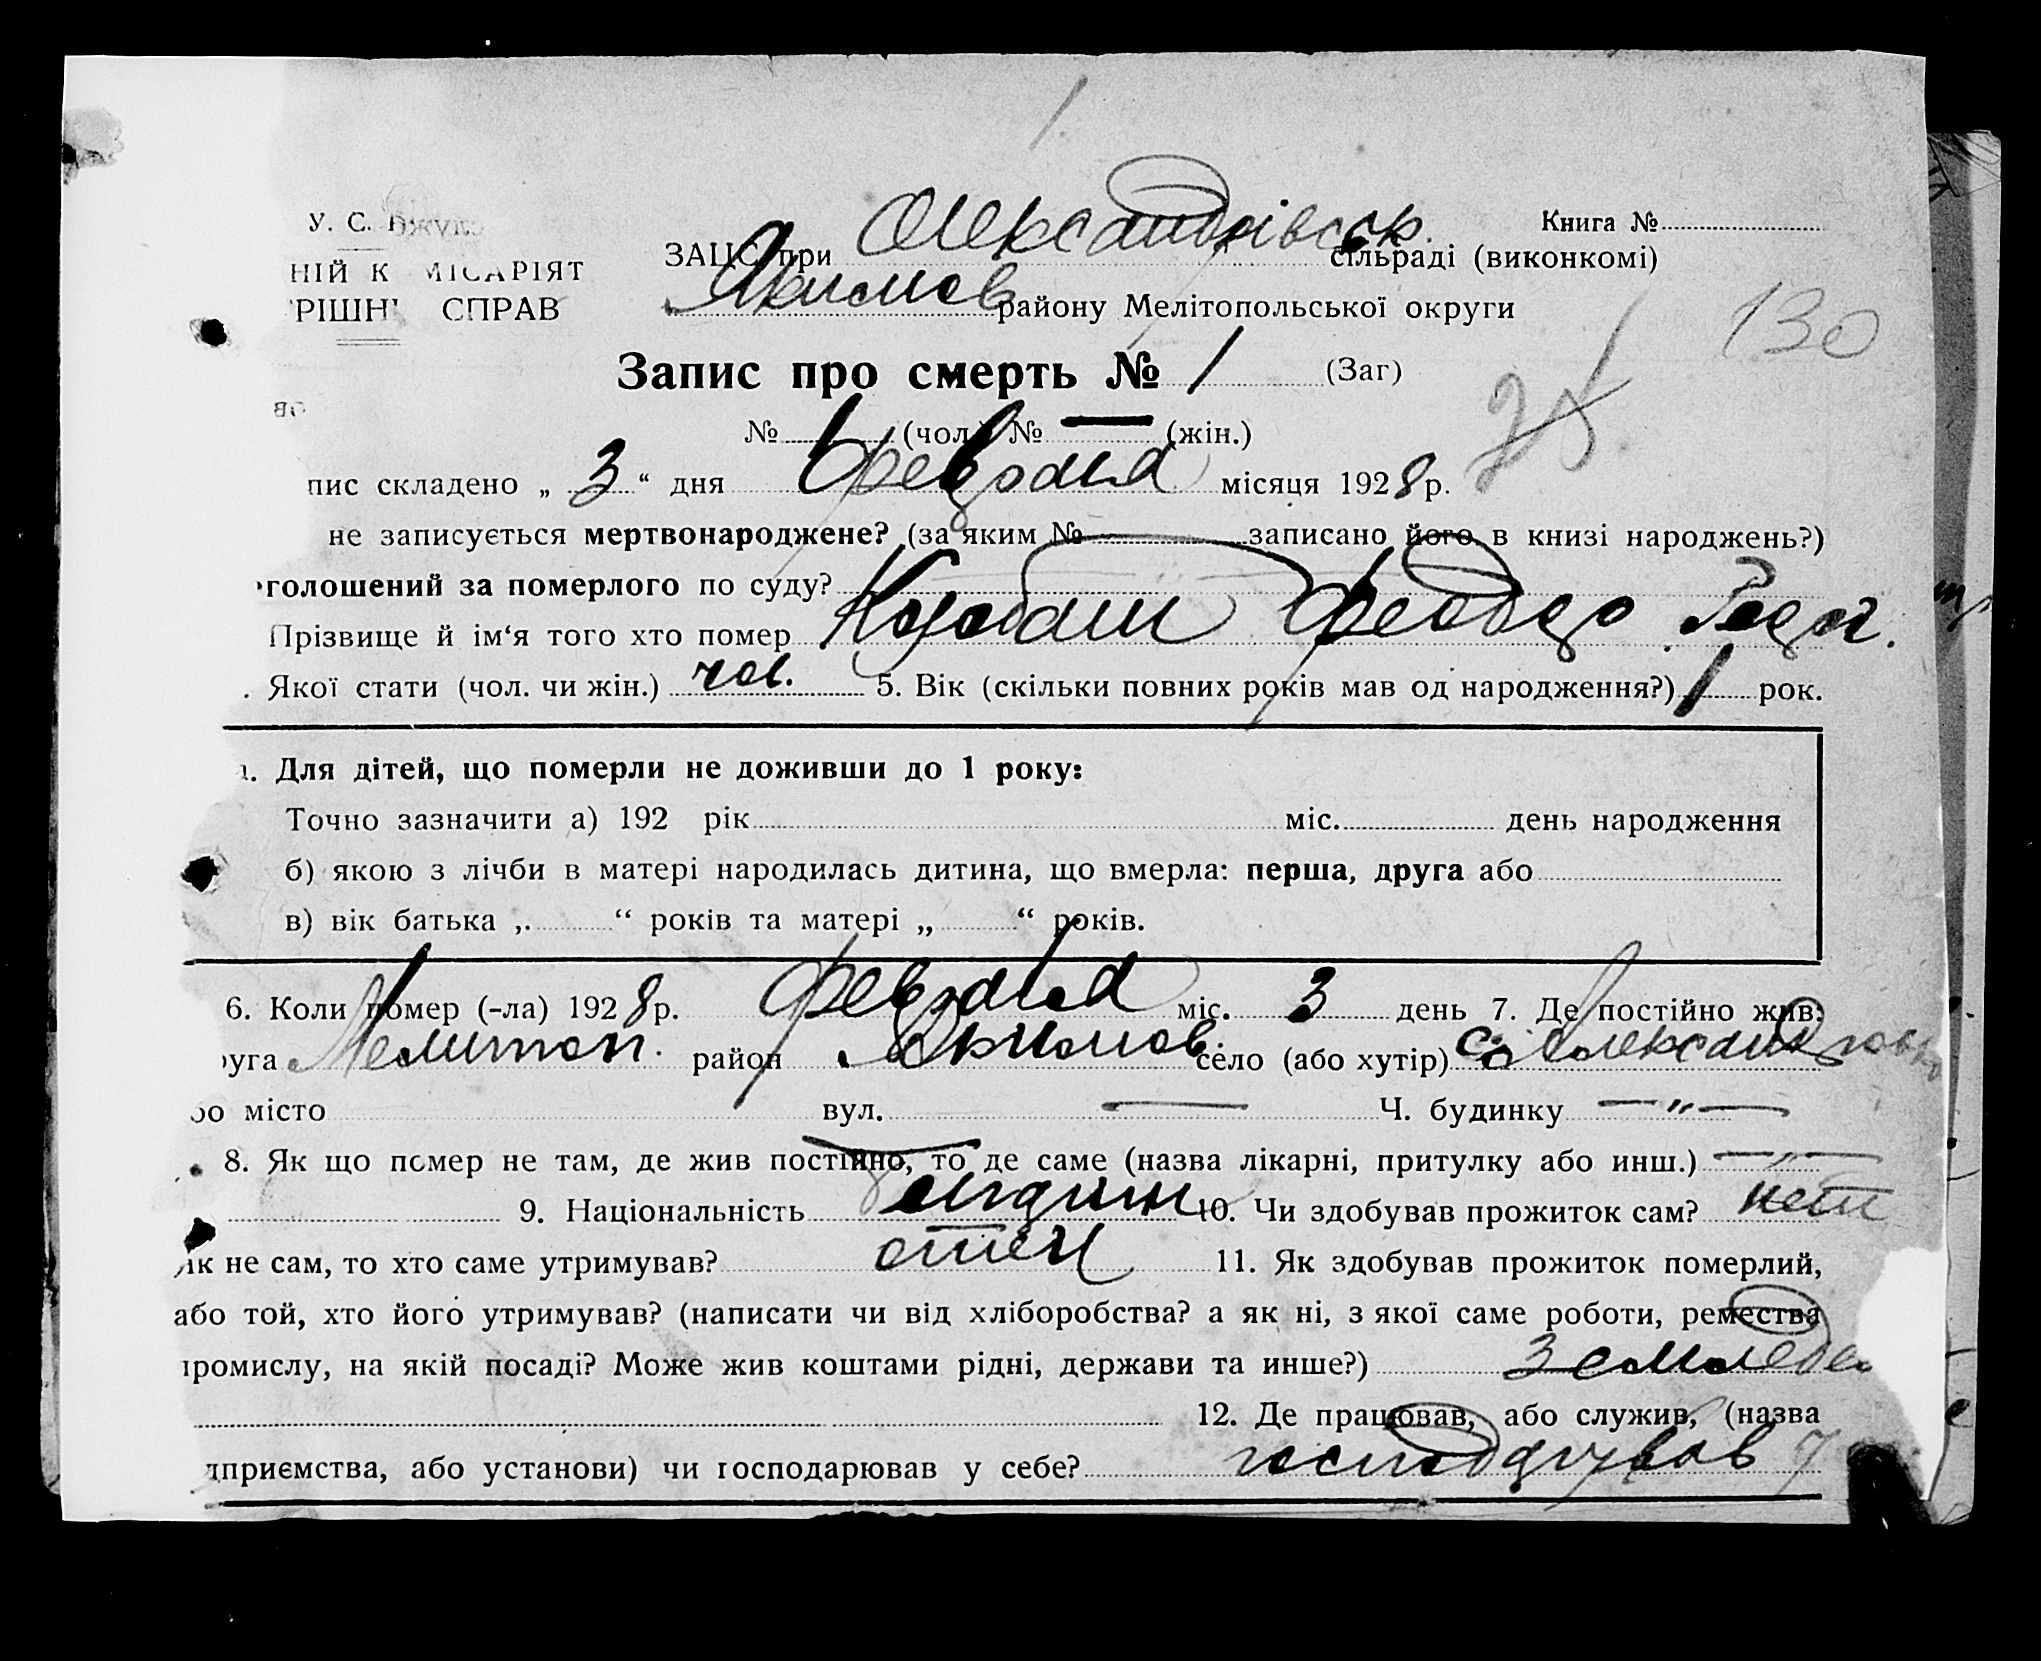 У. С.
Книга №
ЗАЦС при Олександрівськ. сільраді (виконкомі)
НІЙ К МІСАРІЯТ
Якимов району Мелітопольської округи
РІШН СПРАВ
130
Запис про смерть № 1 (Заг)
№ 1 (чол.) № — (жін.)
пис складено „ 3 “ дня Февраля місяця 1928 р.
не записується мертвонароджене? (за яким № записано його в книзі народжень?)
голошений за померлого по суду?
Прізвище й ім‘я того хто помер Федор
. Якої стати (чол. чи жін.) чол. 5. Вік (скільки повних років мав од народження?) 1 рок.
Для дітей, що померли не доживши до 1 року:
Точно зазначити а) 192 рік міс. день народження
б) якою з лічби в матері народилась дитина, що вмерла: перша, друга або
в) вік батька „ “ років та матері „ “ років.
6. Коли помер (-ла) 1928 р. февраля міс. 3 день 7. Де постійно жив:
руга Мелитоп. район Якимов. село (або хутір) с.
бо місто вул. — Ч. будинку — „ —
8. Як що помер не там, де жив постійно, то де саме (назва лікарні, притулку або инш.) — „ —
9. Національність 10. Чи здобував прожиток сам? нет
Як не сам, то хто саме утримував? отец 11. Як здобував прожиток померлий,
або той, хто його утримував? (написати чи від хліборобства? а як ні, з якої саме роботи, ремества
промислу, на якій посаді? Може жив коштами рідні, держави та инше?) земледел
12. Де працював, або служив, (назва
дприємства, або установи) чи господарював у себе?